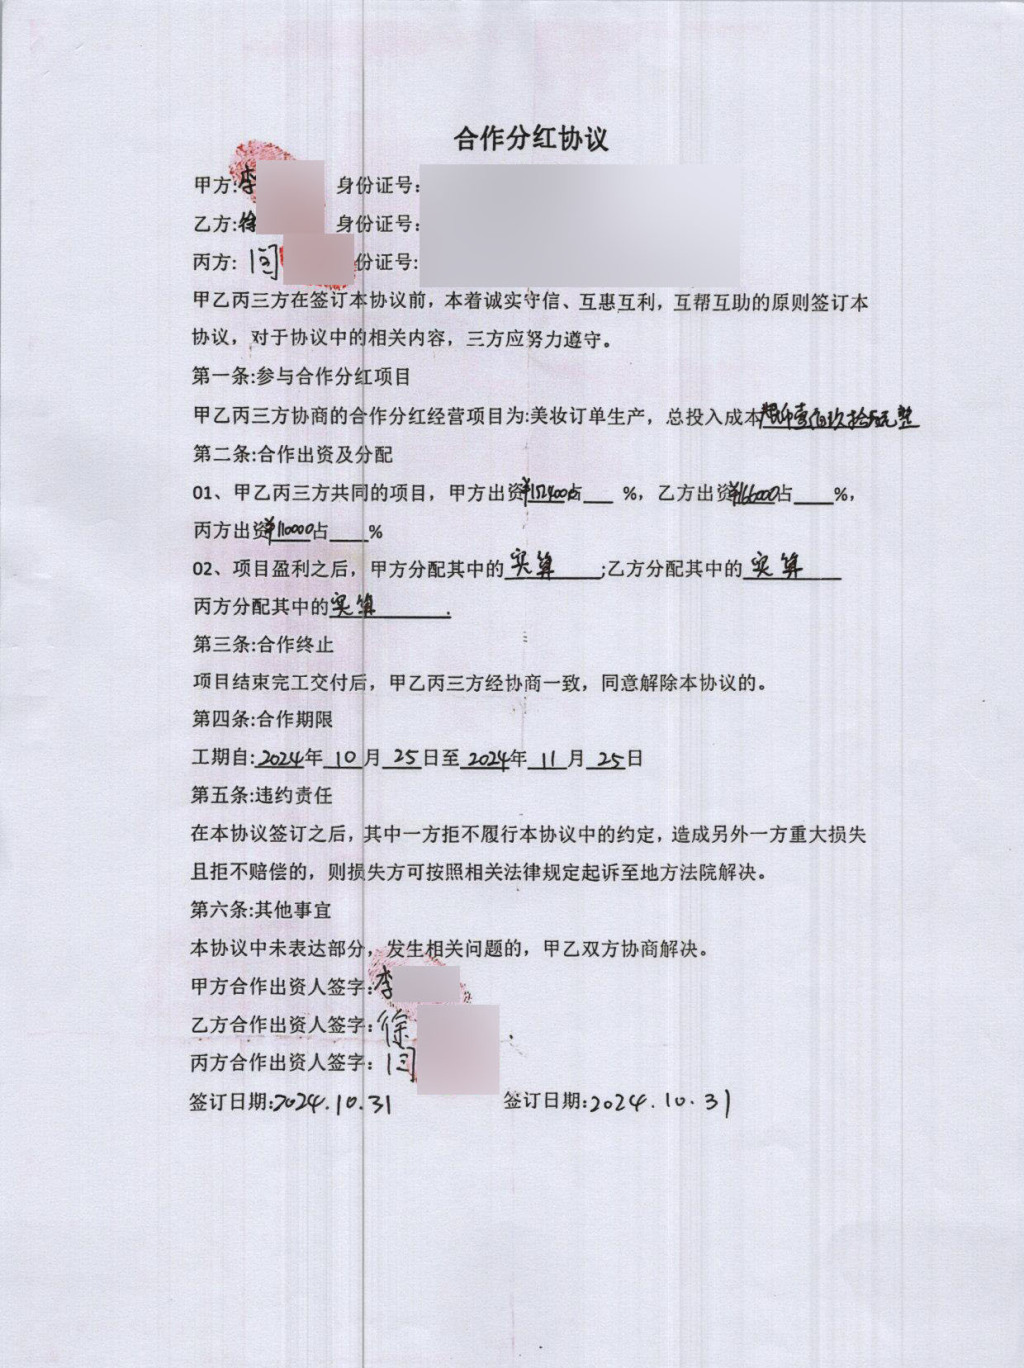 合作分红协议
甲方:李 身份证号:
乙方:徐 身份证号:
丙方: 闫 份证号:
甲乙丙三方在签订本协议前，本着诚实守信、互惠互利，互帮互助的原则签订本
协议，对于协议中的相关内容，三方应努力遵守。
第一条:参与合作分红项目
甲乙丙三方协商的合作分红经营项目为:美妆订单生产，总投入成本 壹佰玖拾元整
第二条:合作出资及分配
01、甲乙丙三方共同的项目，甲方出资¥152400占___ %，乙方出资¥166000占____%，
丙方出资¥110000占____%
02、项目盈利之后，甲方分配其中的 实算 ;乙方分配其中的 实算
丙方分配其中的 实算 .
第三条:合作终止
项目结束完工交付后，甲乙丙三方经协商一致，同意解除本协议的。
第四条:合作期限
工期自: 2024年 10 月 25 日至 2024年 11 月 25 日
第五条:违约责任
在本协议签订之后，其中一方拒不履行本协议中的约定，造成另外一方重大损失
且拒不赔偿的，则损失方可按照相关法律规定起诉至地方法院解决。
第六条:其他事宜
本协议中未表达部分，发生相关问题的，甲乙双方协商解决。
甲方合作出资人签字:李
乙方合作出资人签字:徐
丙方合作出资人签字: 闫
签订日期:2024.10.31 签订日期:2024.10.31